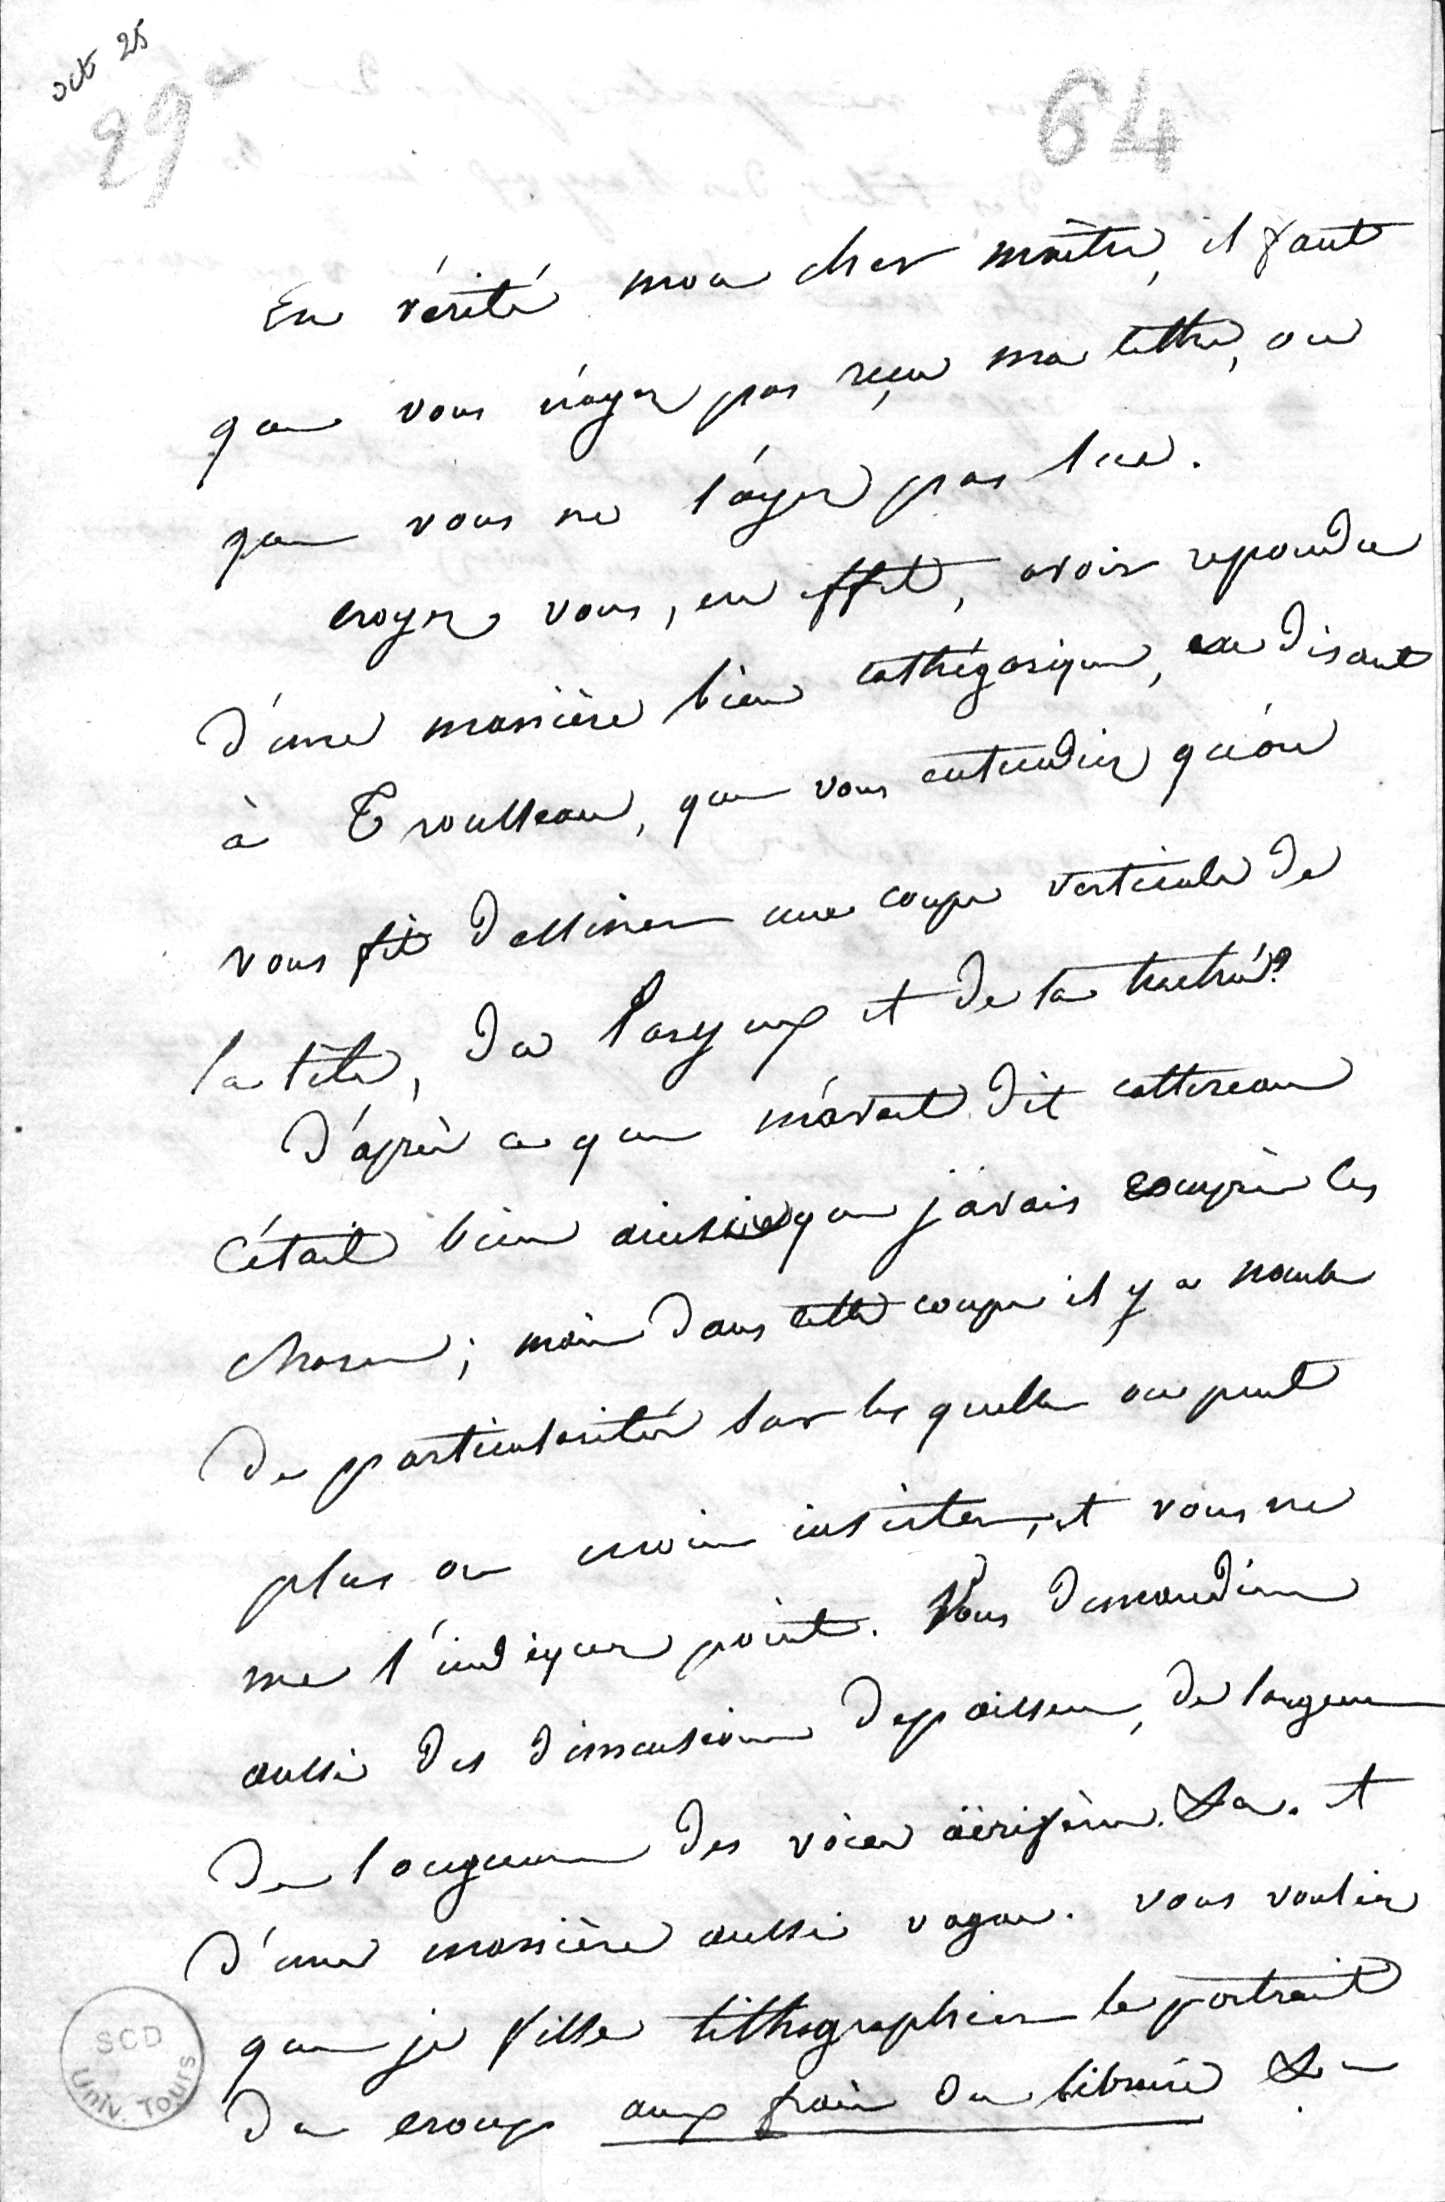 oct 25
29e
64
En vérité mon cher maître, il faut
que vous n'ayez pas reçu ma lettre, ou
que vous ne l'ayez pas lue.
croyez vous, en effet, avoir repondu
d'une manière bien cathégorique, en disant
à Trousseau, que vous entendiez qu'on
vous fit dessiner une coupe verticale de
la tête, du larynx et de la trachée?
D'après ce que m'avait dit cottereau
c'était bien ainsi que j'avais compris les
choses; mais dans cette coupe il y a nombre
de particularités sur les quelles on peut
plus ou moins insister, et vous ne
me l'indiquez point. Vous demandiez
aussi des dimensions d'epaisseur, de largeur
de longueur des voies aërifères &a. et
d'une manière aussi vague. vous vouliez
que je fisse lithographier le portrait
du croup aux frais du libraire &a
SCD
Univ. Tours